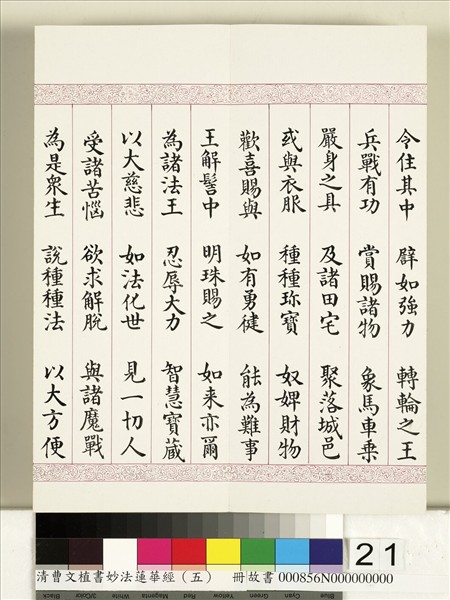 令住其中 譬如強力 轉輪之王
兵戰有功 賞賜諸物 象馬車乘
嚴身之具 及諸田宅 聚落城邑
或與衣服 種種珍寶 奴婢財物
歡喜賜與 如有勇健 能為難事
王解髻中 明珠賜之 如来亦爾
為諸法王 忍辱大力 智慧寶藏
以大慈悲 如法化世 見一切人
受諸苦惱 欲求解脫 與諸魔戰
為是眾生 說種種法 以大方便
21
清曹文植書妙法蓮華經（五） 冊故書 000856N000000000
Black 3/Color White Magenta Red Yellow Green Cyan Blue